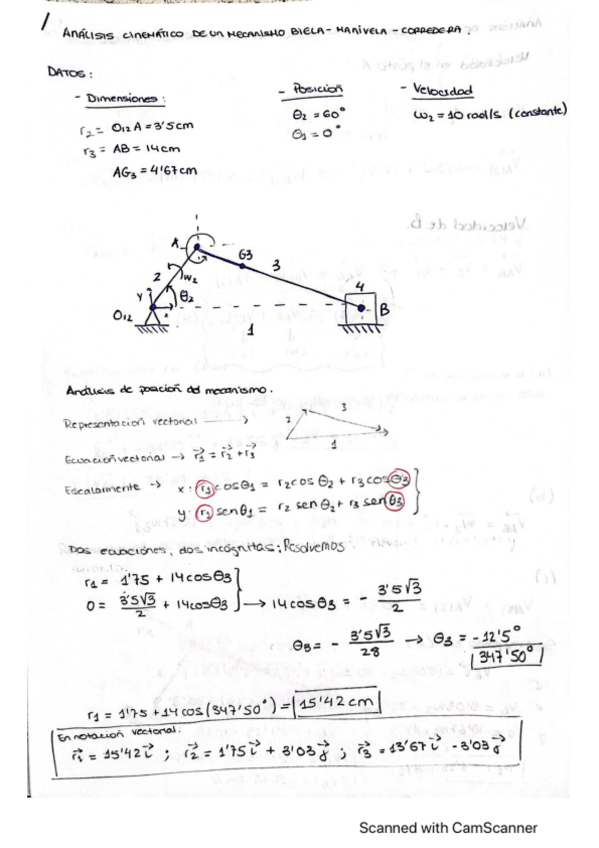 1
ANÁLISIS CINEMÁTICO DE UN MECANISMO BIELA-MANIVELA-CORREDERA.
DATOS:
- Dimensiones:
r₂ = O₁₂A = 3'5cm
r₃ = AB = 14cm
AG₃ = 4'67cm
- Posición
θ₂ = 60°
θ₁ = 0°
- Velocidad
ω₂ = 10 rad/s (constante)
A
G3
3
2
ω₂
4
Y
θ₂
x
B
O₁₂
1
Análisis de posición del mecanismo.
Representación vectorial →
2
3
1
Ecuación vectorial → r₁ = r₂ + r₃
Escalarmente → x: r₁cosθ₁ = r₂cosθ₂ + r₃cosθ₃
y: r₁senθ₁ = r₂ senθ₂ + r₃ senθ₃
Dos ecuaciones, dos incógnitas; Resolvemos
r₁ = 1'75 + 14cosθ₃
0 = 3'5√3/2 + 14cosθ₃ → 14cosθ₃ = - 3'5√3/2
θ₃ = - 3'5√3/28 → θ₃ = -12'5°
347'50°
r₁ = 1'75 + 14cos(347'50°) = 15'42cm
En notación vectorial:
r₁ = 15'42i ; r₂ = 1'75i + 3'03j ; r₃ = 13'67i - 3'03j
Scanned with CamScanner